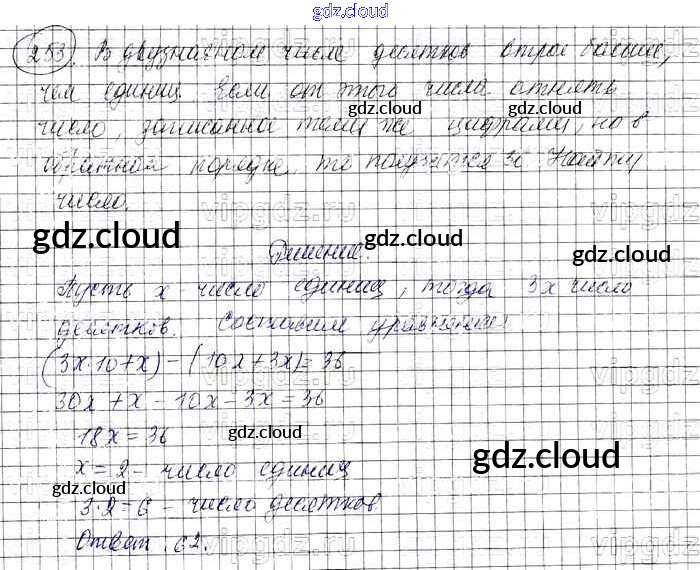 gdz.cloud
253. В двузначном числе десятков втрое больше,
чем единиц. Если от этого числа отнять
gdz.cloud gdz.cloud
число, записанное теми же цифрами, но в
обратном порядке, то получится 36. Найти
число.
vipgdz.ru vipgdz
gdz.cloud gdz.cloud gdz.cloud
Решение.
Пусть x - число единиц, тогда 3x число
десятков. Составим уравнение:
(3x·10+x)-(10x+3x)=36
vipgdz.ru vipgdz
30x+x-10x-3x=36
18x=36
gdz.cloud gdz.cloud
x=2 - число единиц
gdz.cloud
3·2=6 - число десятков.
Ответ. 62.
vipgdz.ru vipgdz